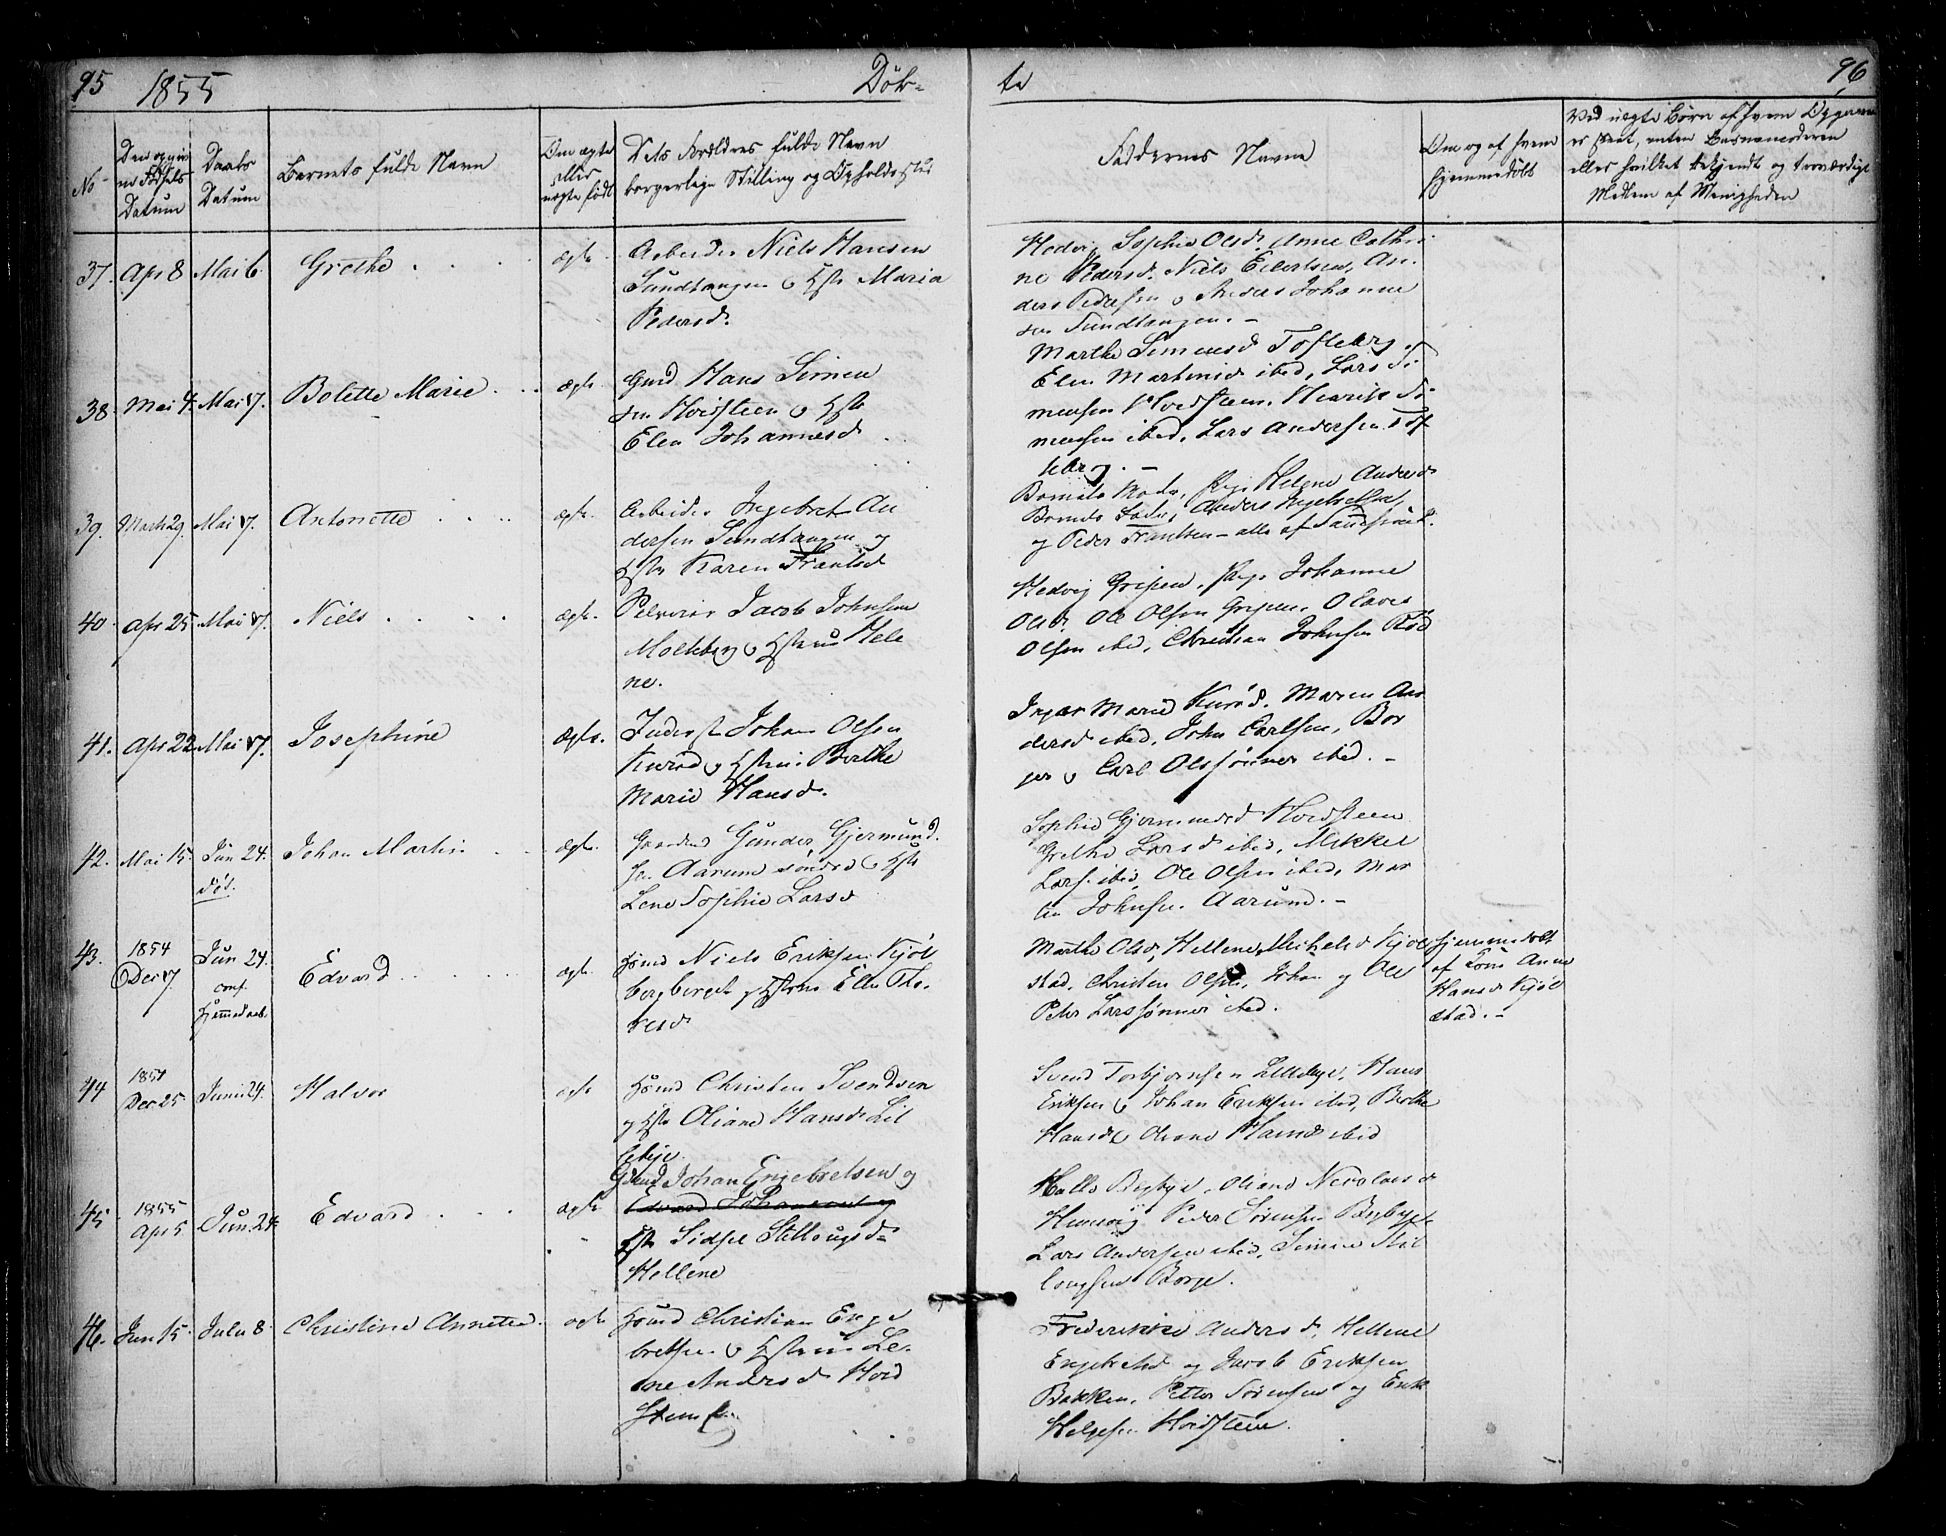 95 1855 Døb-
te 96
No
Den opgiv
ne Fødsels
Datum
Daabs
Datum
Barnets fulde Navn
Om ægte
eller
uægte født
Dets Forældres fulde Navn
borgerlige Stilling og Opholdssted
Faddernes Navne
Om og af hvem
hjemmedøbt
Ved uægte Børn af hvem Opgaven
er skeet, enten Barnemoderen
eller hvilket bekjendt og troværdigt
Medlem af Menigheden
37. Apr 8 Mai 6. Grethe ægte.
Arbeider Niels Hansen
Sandtangen & Hst Maria
Pedersd.
Hedvig Sophie Olsd. Anne Cathri
ne Pedersd. Niels Eilertsen, An-
ders Pedersen & Andreas Johanne
sen Sandtangen. -
38. Mai 4. Mai 17. Bolette Marie ægte.
Gmd Hans Simen
sen Hvidsteen & Hst
Elen Johannesd
Marthe Simensd Tofteberg
Elen Martinsd ibid, Lars Si
mensen Hvidsteen, Henrik Si
mensen ibid, Lars Andersen Tof
teberg. -
39. Marts 29. Mai 17. Antonette ægte.
Arbeider Ingebret An
dersen Sandtangen og
Hst Karen Frantsd
Barnets Moder, Pige Helene Andersd
Barnets Fader, Anders Ingebretsen
og Peder Frantsen - alle af
40. Apr 25 Mai 17. Niels ægte.
Jacob Johnsen
& Hstru Hele
ne.
Hedvig Gripen, Pige Johanne
Olsd, Ole Olsen Gripen, Olaves
Olsen ibid, Christian Johnsen Rød
41. Apr 22 Mai 17. Josephine ægte.
Inderst Johan Olsen
Kurød & Hstru Berthe
Marie Hansd.
Inger Marie Kurød, Maren An
dersd ibid, John Carlsen, Bør
ger & Carl Olssønner ibid. -
42. Mai 15. Jun 24. Johan Martin ægte.
død.
Gunder Gjermund
sn. Aarum søndre & Hst
Lene Sophie Larsd
Sophie Gjermundsd Hvidsteen
Grethe Larsd ibid, Mikkel
Lars. ibid, Ole Olsen ibid, Mar
tin Johnsen Aarum. -
43. 1854
Dec 17 Jun 24. Edvard ægte.
conf.
hjemmedaab.
Hsmd Niels Eriksen Kjøl
bergberget & Hstru Elen Tho
resd
Marthe Olsd, Hellene Mikkelsd Kjøl
stad, Christen Olsen, Johan og Ole
Peter Larssønner ibid.
hjemmedøbt
af Anne
Hansd Kjøl
stad. -
44 1854
Dec. 25 Juni 24. Halvor ægte
Hsmd Christen Svendsen
og Hst Oliane Hansd Lil
lebye.
Svend Torbjørnsen Lillebye, Hans
Eriksen & Johan Eriksen ibid, Berthe
Hansd & Oliane Hansd ibid
45. 1855
Apr 5 Jun. 24. Edvard ægte
Gbmd Johan Engebretsen og
Edvard Johannesen og
Hst Sidsel Stillaugsd
Hellene
Halle Begbye, Oliane Nicolaisd
Peder Sørensen Begbye
Lars Andersen ibid, Simen Stil
laugsen Borge.
46. Jun 15. Julii 8. Christine Annette ægte
Hsmd Christian Enge
bretsen & Hstruen Le
ne Andersd Hvid
steen
Frederikke Andersd, Hellene
Engebretsd og Jacob Eriksen
Bakken, Petter Sørensen og Erik
Helgesen Hvidsteen.